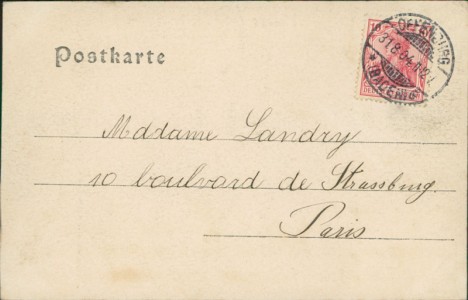 10
OFFENBURG
Postkarte
31.8.04.
* (BADEN) *
Madame Landry
10 boulvard de Strassburg.
Paris